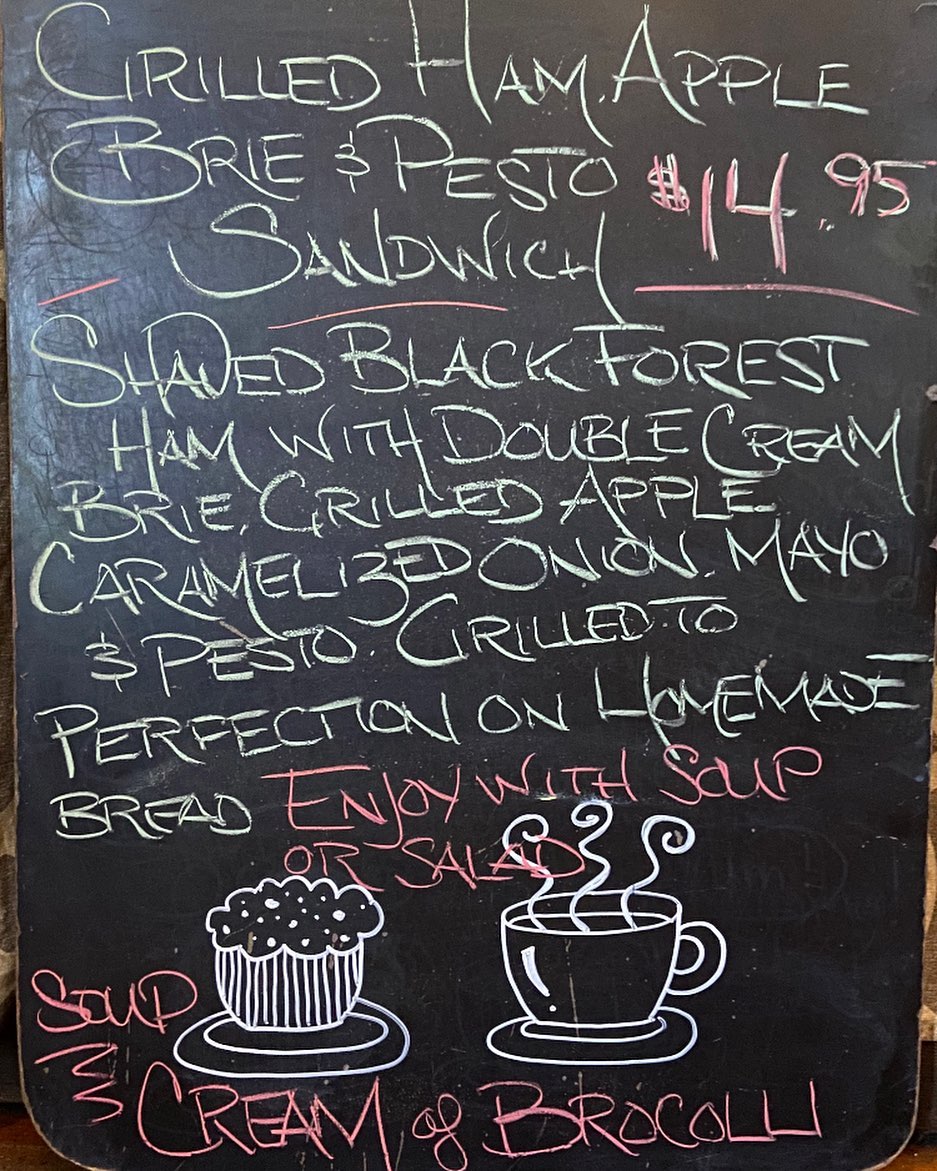 GRILLED HAM, APPLE
BRIE & PESTO $14.95
SANDWICH
SHAVED BLACK FOREST
HAM WITH DOUBLE CREAM
BRIE, GRILLED APPLE
CARAMELIZED ONION, MAYO
& PESTO. GRILLED TO
PERFECTION ON HOMEMADE
BREAD ENJOY WITH SOUP
OR SALAD
SOUP
CREAM of BROCOLLI